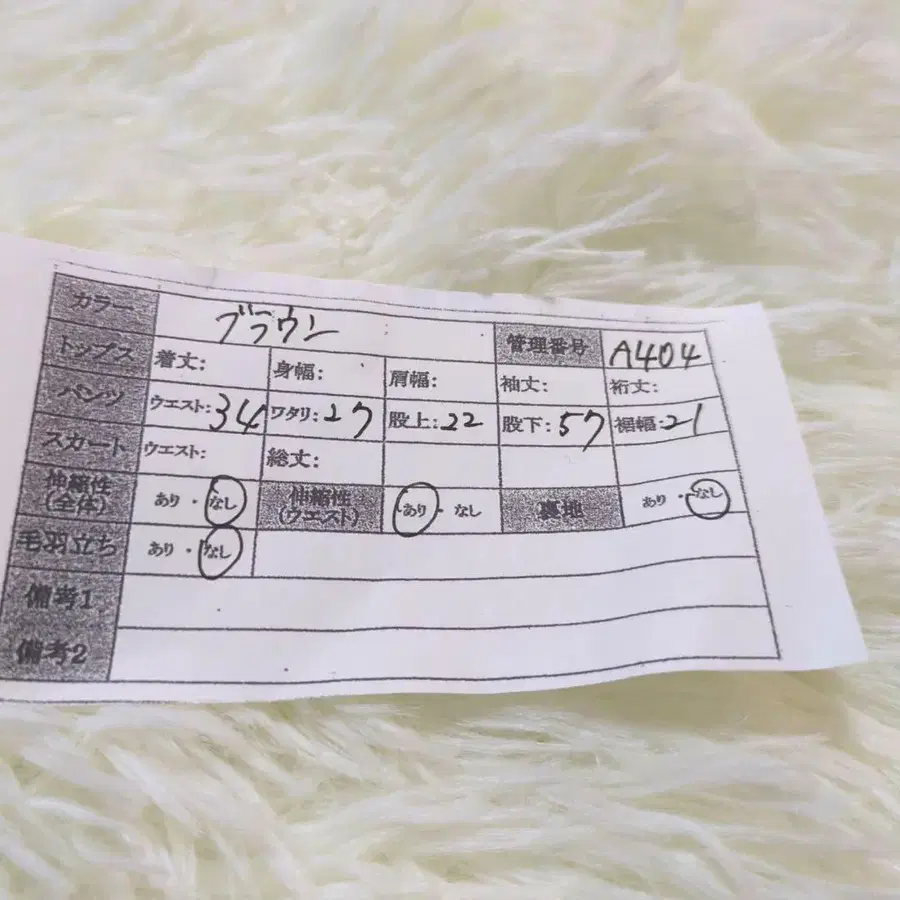 カラー ブラウン 管理番号 A404
トップス 着丈: 身幅: 肩幅: 袖丈: 裄丈:
パンツ ウエスト:34 ワタリ:27 股上:22 股下:57 裾幅:21
スカート ウエスト: 総丈:
伸縮性(全体) あり・なし 伸縮性(ウエスト) あり・なし 裏地 あり・なし
毛羽立ち あり・なし
備考1
備考2